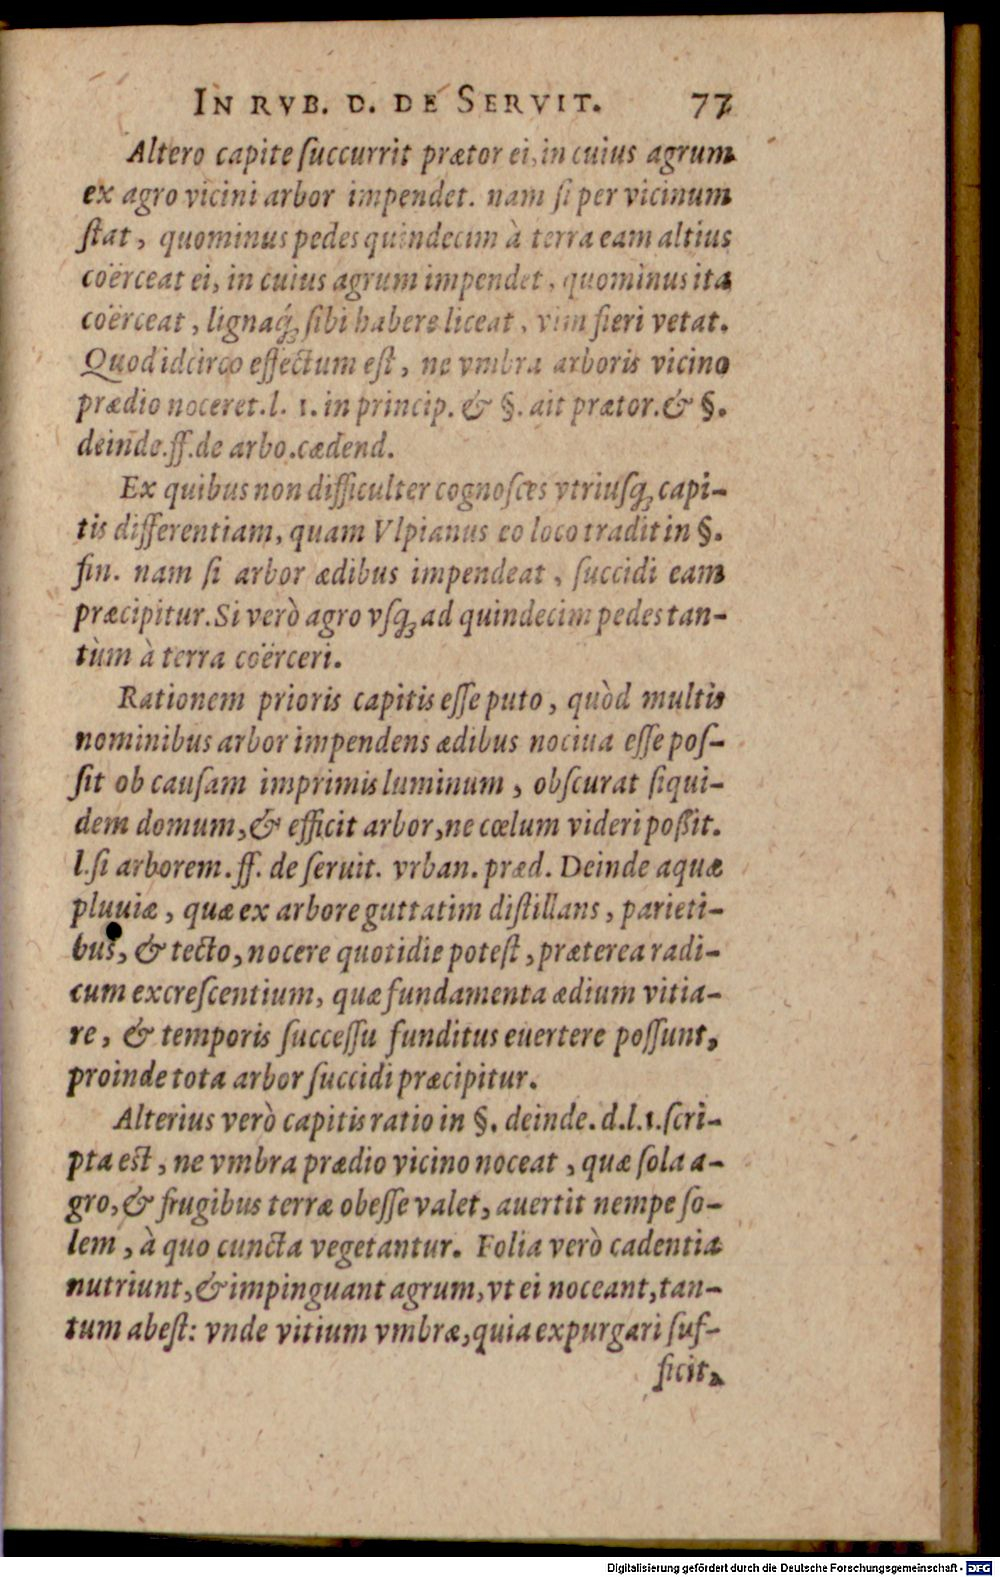 IN RVB. D. DE SERVIT. 77
Altero capite ſuccurrit prætor ei, in cuius agrum
ex agro vicini arbor impendet. nam ſi per vicinum
ſtat, quominus pedes quindecim à terra eam altius
coërceat ei, in cuius agrum impendet, quominus ita
coërceat, lignaq́ꝫ ſibi habere liceat, vim fieri vetat.
Quod idcirco effectum eſt, ne vmbra arboris vicino
prædio noceret. l. 1. in princip. & §. ait prætor. & §.
deinde. ff. de arbo. cædend.
Ex quibus non difficulter cognoſces vtriuſqꝫ capi-
tis differentiam, quam Vlpianus eo loco tradit in §.
fin. nam ſi arbor ædibus impendeat, ſuccidi eam
præcipitur. Si verò agro vſqꝫ ad quindecim pedes tan-
tùm à terra coërceri.
Rationem prioris capitis eſſe puto, quòd multis
nominibus arbor impendens ædibus nociua eſſe poſ-
ſit ob cauſam imprimis luminum, obſcurat ſiqui-
dem domum, & efficit arbor, ne cœlum videri poßit.
l. ſi arborem. ff. de ſeruit. vrban. præd. Deinde aquæ
pluuiæ, quæ ex arbore guttatim diſtillans, parieti-
bus, & tecto, nocere quotidie poteſt, præterea radi-
cum excreſcentium, quæ fundamenta ædium vitia-
re, & temporis ſucceſſu funditus euertere poſſunt,
proinde tota arbor ſuccidi præcipitur.
Alterius verò capitis ratio in §. deinde. d. l. 1. ſcri-
pta eſt, ne vmbra prædio vicino noceat, quæ ſola a-
gro, & frugibus terræ obeſſe valet, auertit nempe ſo-
lem, à quo cuncta vegetantur. Folia verò cadentia
nutriunt, & impinguant agrum, vt ei noceant, tan-
tum abeſt: vnde vitium vmbræ, quia expurgari ſuf-
ficit,
Digitalisierung gefördert durch die Deutsche Forschungsgemeinschaft - DFG